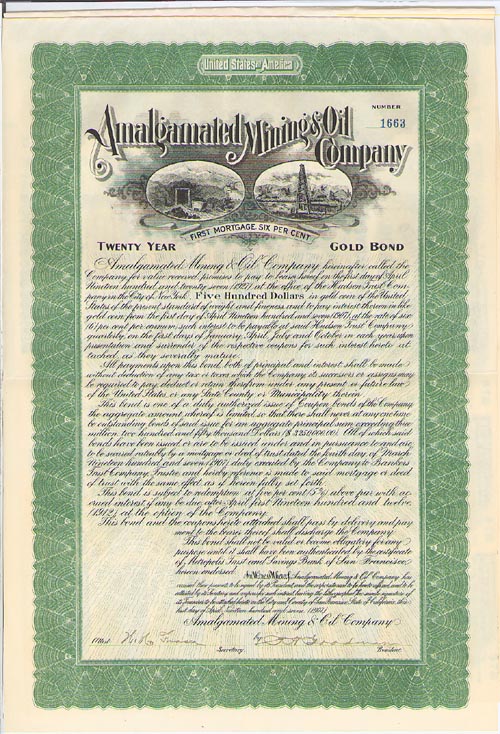 United States of America
NUMBER
1663
Amalgamated Mining & Oil
Company
FIRST MORTGAGE SIX PER CENT
TWENTY YEAR GOLD BOND
Amalgamated Mining & Oil Company hereinafter called the
Company for value received promises to pay to bearer hereof on the first day of April
Nineteen hundred and twenty seven (1927) at the office of the Hudson Trust Com-
pany in the City of New York, Five Hundred Dollars in gold coin of the United
States of the present standard of weight and fineness, and to pay interest thereon in like
gold coin from the first day of April Nineteen hundred and seven (1907) at the rate of six
(6) per cent per annum, such interest to be payable at said Hudson Trust Company
quarterly, on the first days of January, April, July and October in each year upon
presentation and surrender of the respective coupons for such interest hereto at-
tached, as they severally mature.
All payments upon this bond, both of principal and interest, shall be made
without deduction of any tax or taxes which the Company its successors or assigns may
be required to pay, deduct or retain therefrom under any present or future law
of the United States, or any State County or Municipality therein
This bond is one of a duly authorized issue of Coupon bonds of the Company
the aggregate amount whereof is limited so that there shall never at any one time
be outstanding bonds of said issue for an aggregate principal sum exceeding three
million, two hundred and fifty thousand Dollars ($3,250,000.00). All of which said
bonds have been issued or are to be issued under and in pursuance to and are
to be secured ratably by a mortgage or deed of trust dated the fourth day of March
Nineteen hundred and seven (1907) duly executed by the Company to Bankers
Trust Company, Trustee and hereby reference is made to said mortgage or deed
of trust with the same effect as if herein fully set forth.
This bond is subject to redemption at five per cent (5%) above par with ac-
crued interest if any be due, after April first Nineteen hundred and twelve
(1912) at the option of the Company.
This bond and the coupons hereto attached shall pass by delivery and pay-
ment to the bearer thereof shall discharge the Company.
This bond shall not be valid or become obligatory for any
purpose until it shall have been authenticated by the certificate
of Metropolis Trust and Savings Bank of San Francisco
hereon endorsed.
In Witness Whereof, Amalgamated Mining & Oil Company has
caused these presents to be signed by its President, and its corporate seal to be hereto affixed, and to be
attested by its Secretary and
its Treasurer to be attached hereto in the City and County of San Francisco, State of California, this
first day of April, nineteen hundred and seven (1907)
Amalgamated Mining & Oil Company
Attest
Secretary President